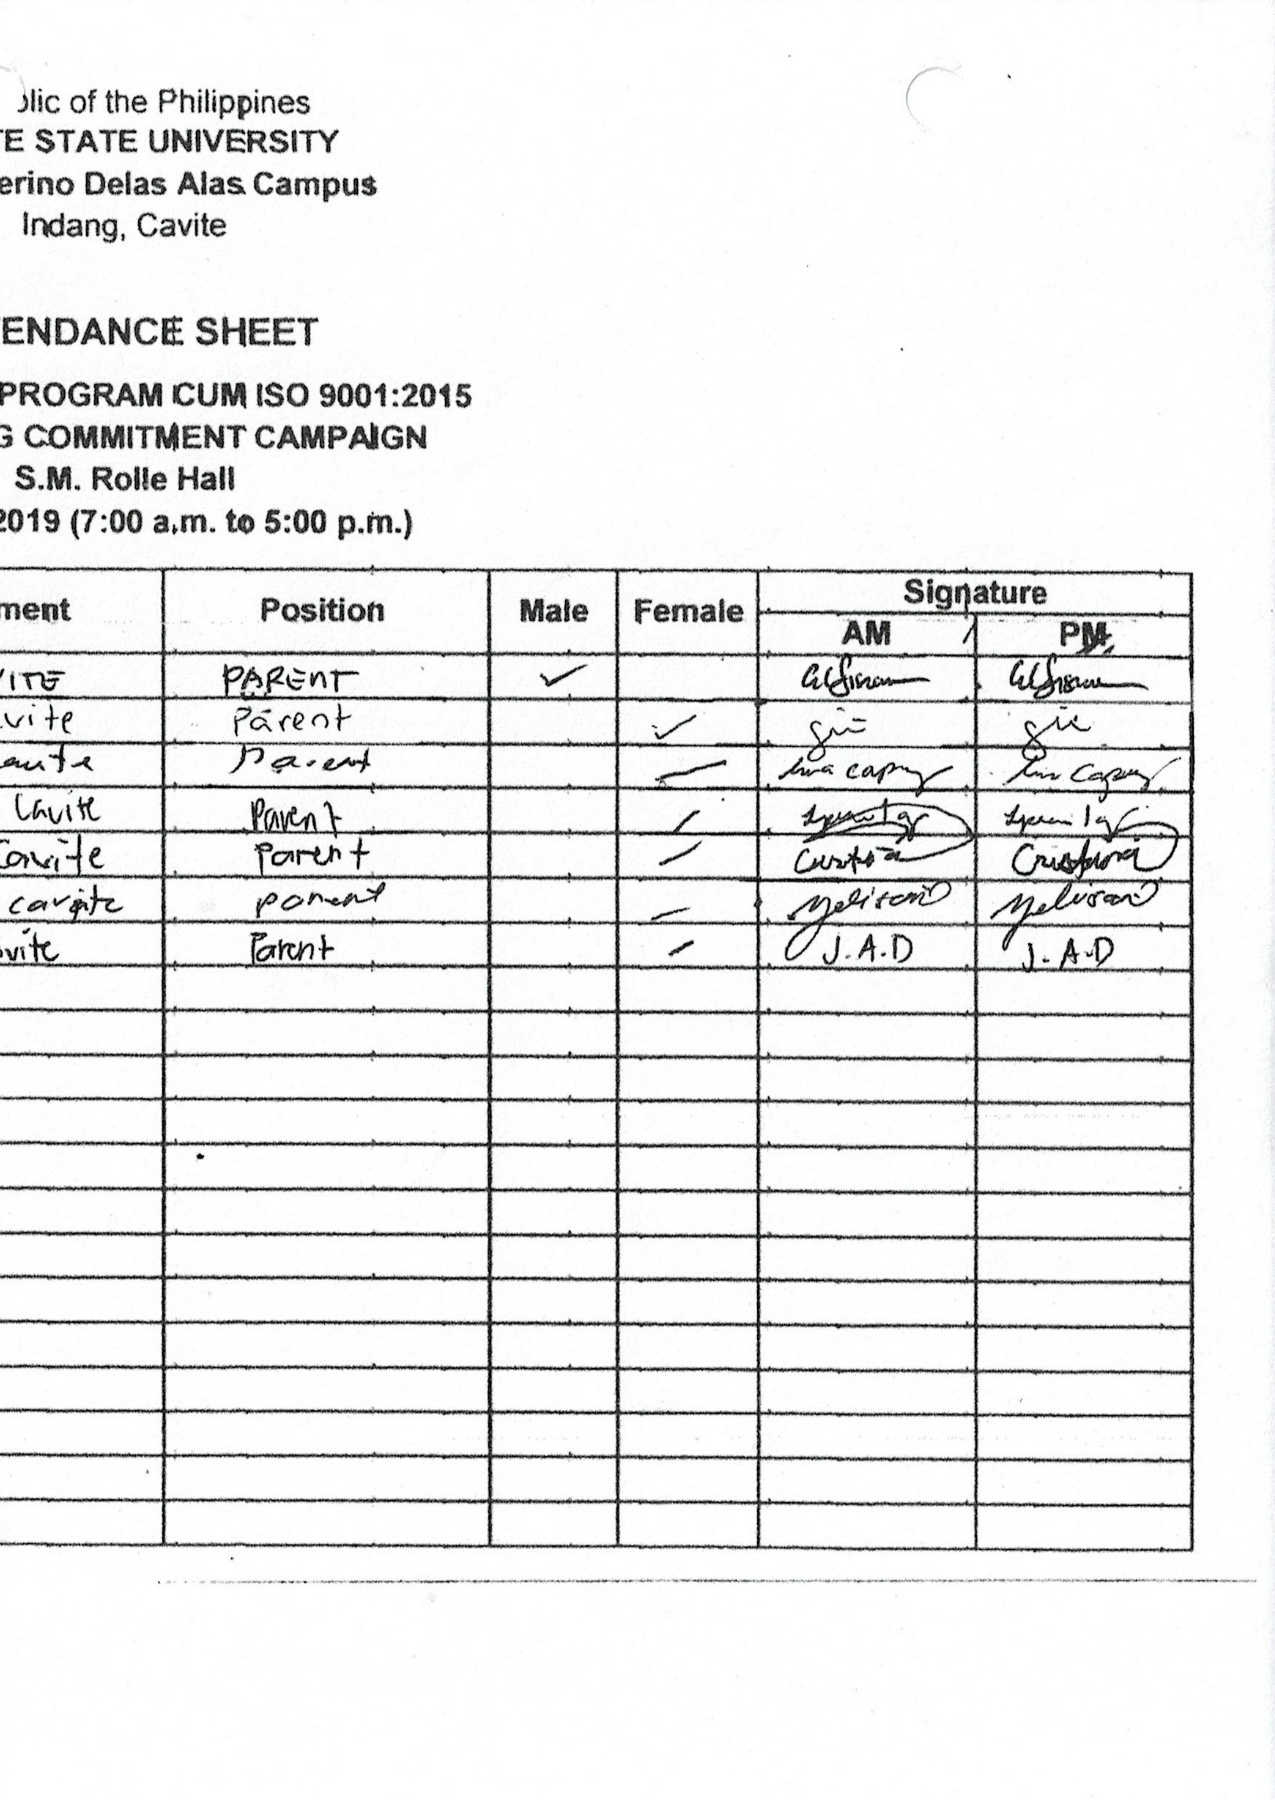 blic of the Philippines
TE STATE UNIVERSITY
erino Delas Alas Campus
Indang, Cavite
ENDANCE SHEET
PROGRAM CUM ISO 9001:2015
G COMMITMENT CAMPAIGN
S.M. Rolle Hall
2019 (7:00 a.m. to 5:00 p.m.)
ment Position Male Female Signature
AM PM
VITE PARENT
vite Parent
Parent
Cavite Parent
Cavite Parent
cavite parent
vite Parent J.A.D J.A.D